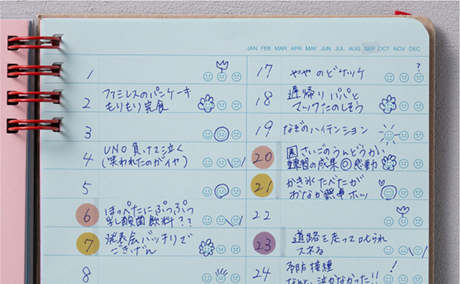 JAN FEB MAR APR MAY JUN JUL AUG SEP OCT NOV DEC
1
2 ファミレスのパンケーキ
もりもり完食
3
4 UNO 負けて泣く
(笑われたのがイヤ)
5
6 ほっぺたにぷつぷつ
乳酸菌飲料??
7 発表会バッチリで
ごきげん
8
17 ややのどケッケ
18 遅帰りパパと
でたのしそう
19 なぞのハイテンション
20 園さいごのうんどうかい
練習の成果◎感動
21 かき氷たべたが
おなか無事ホッ
22
23 道路を走って叱られ
スネる
24 予防接種
なんと、泣かなかった!!
?